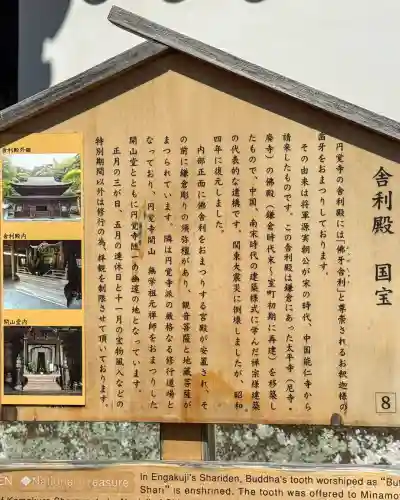 舎利殿　国宝
円覚寺の舎利殿には「佛牙舎利」と尊崇されるお釈迦様の
歯牙をおまつりしております。
その由来は将軍源実朝公が宋の時代、中国能仁寺から
請来したものです。この舎利殿は鎌倉にあった太平寺（尼寺・
廃寺）の佛殿（鎌倉時代末～室町初期に再建）を移築し
たもので、中国、南宋時代の建築様式に学んだ禅宗様建築
の代表的な遺構です。関東大震災に倒壊しましたが、昭和
四年に復元しました。
内部正面に佛舎利をおまつりする宮殿が安置され、そ
の前に鎌倉彫りの須弥壇があり、観音菩薩と地蔵菩薩が
まつられています。隣は円覚寺派の厳格なる修行道場と
なっており、円覚寺開山　無学祖元禅師をおまつりした
開山堂とともに円覚寺随一の幽邃の地となっています。
正月の三が日、五月の連休日と十一月の宝物風入などの
特別期間以外は修行の為、拝観を制限させて頂いております。
舎利殿外観
舎利殿内
開山堂内
8
EN ◆National Treasure
In Engakuji's Shariden, Buddha's tooth worshiped as "Bu
Shari" is enshrined. The tooth was offered to Minamo